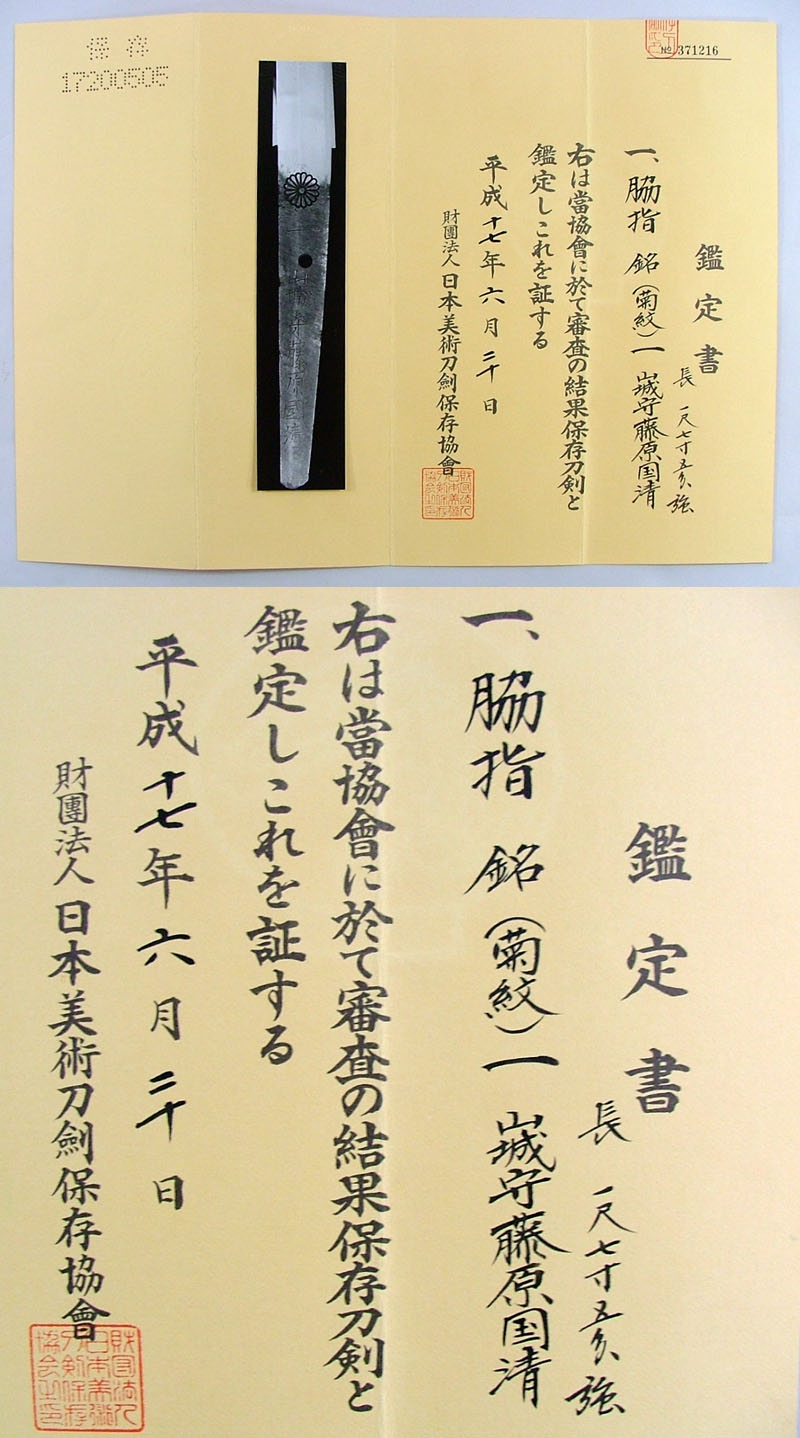 保存
17200505
№ 371216
鑑定書
長 一尺七寸五分強
一、脇指 銘 (菊紋) 一 山城守藤原国清
右は當協會に於て審査の結果保存刀剣と
鑑定しこれを証する
平成十七年六月二十日
財團法人日本美術刀劍保存協會
鑑定書
長 一尺七寸五分強
一、脇指 銘 (菊紋) 一 山城守藤原国清
右は當協會に於て審査の結果保存刀剣と
鑑定しこれを証する
平成十七年六月二十日
財團法人日本美術刀劍保存協會
財団法人
日本美術
刀剣保存
協会之印